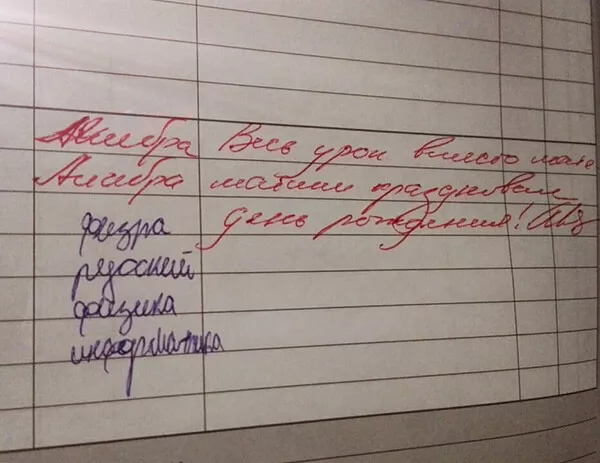 Алгебра Весь урок вместо мате
Алгебра матики праздновали
физра день рождения!
русский
физика
информатика